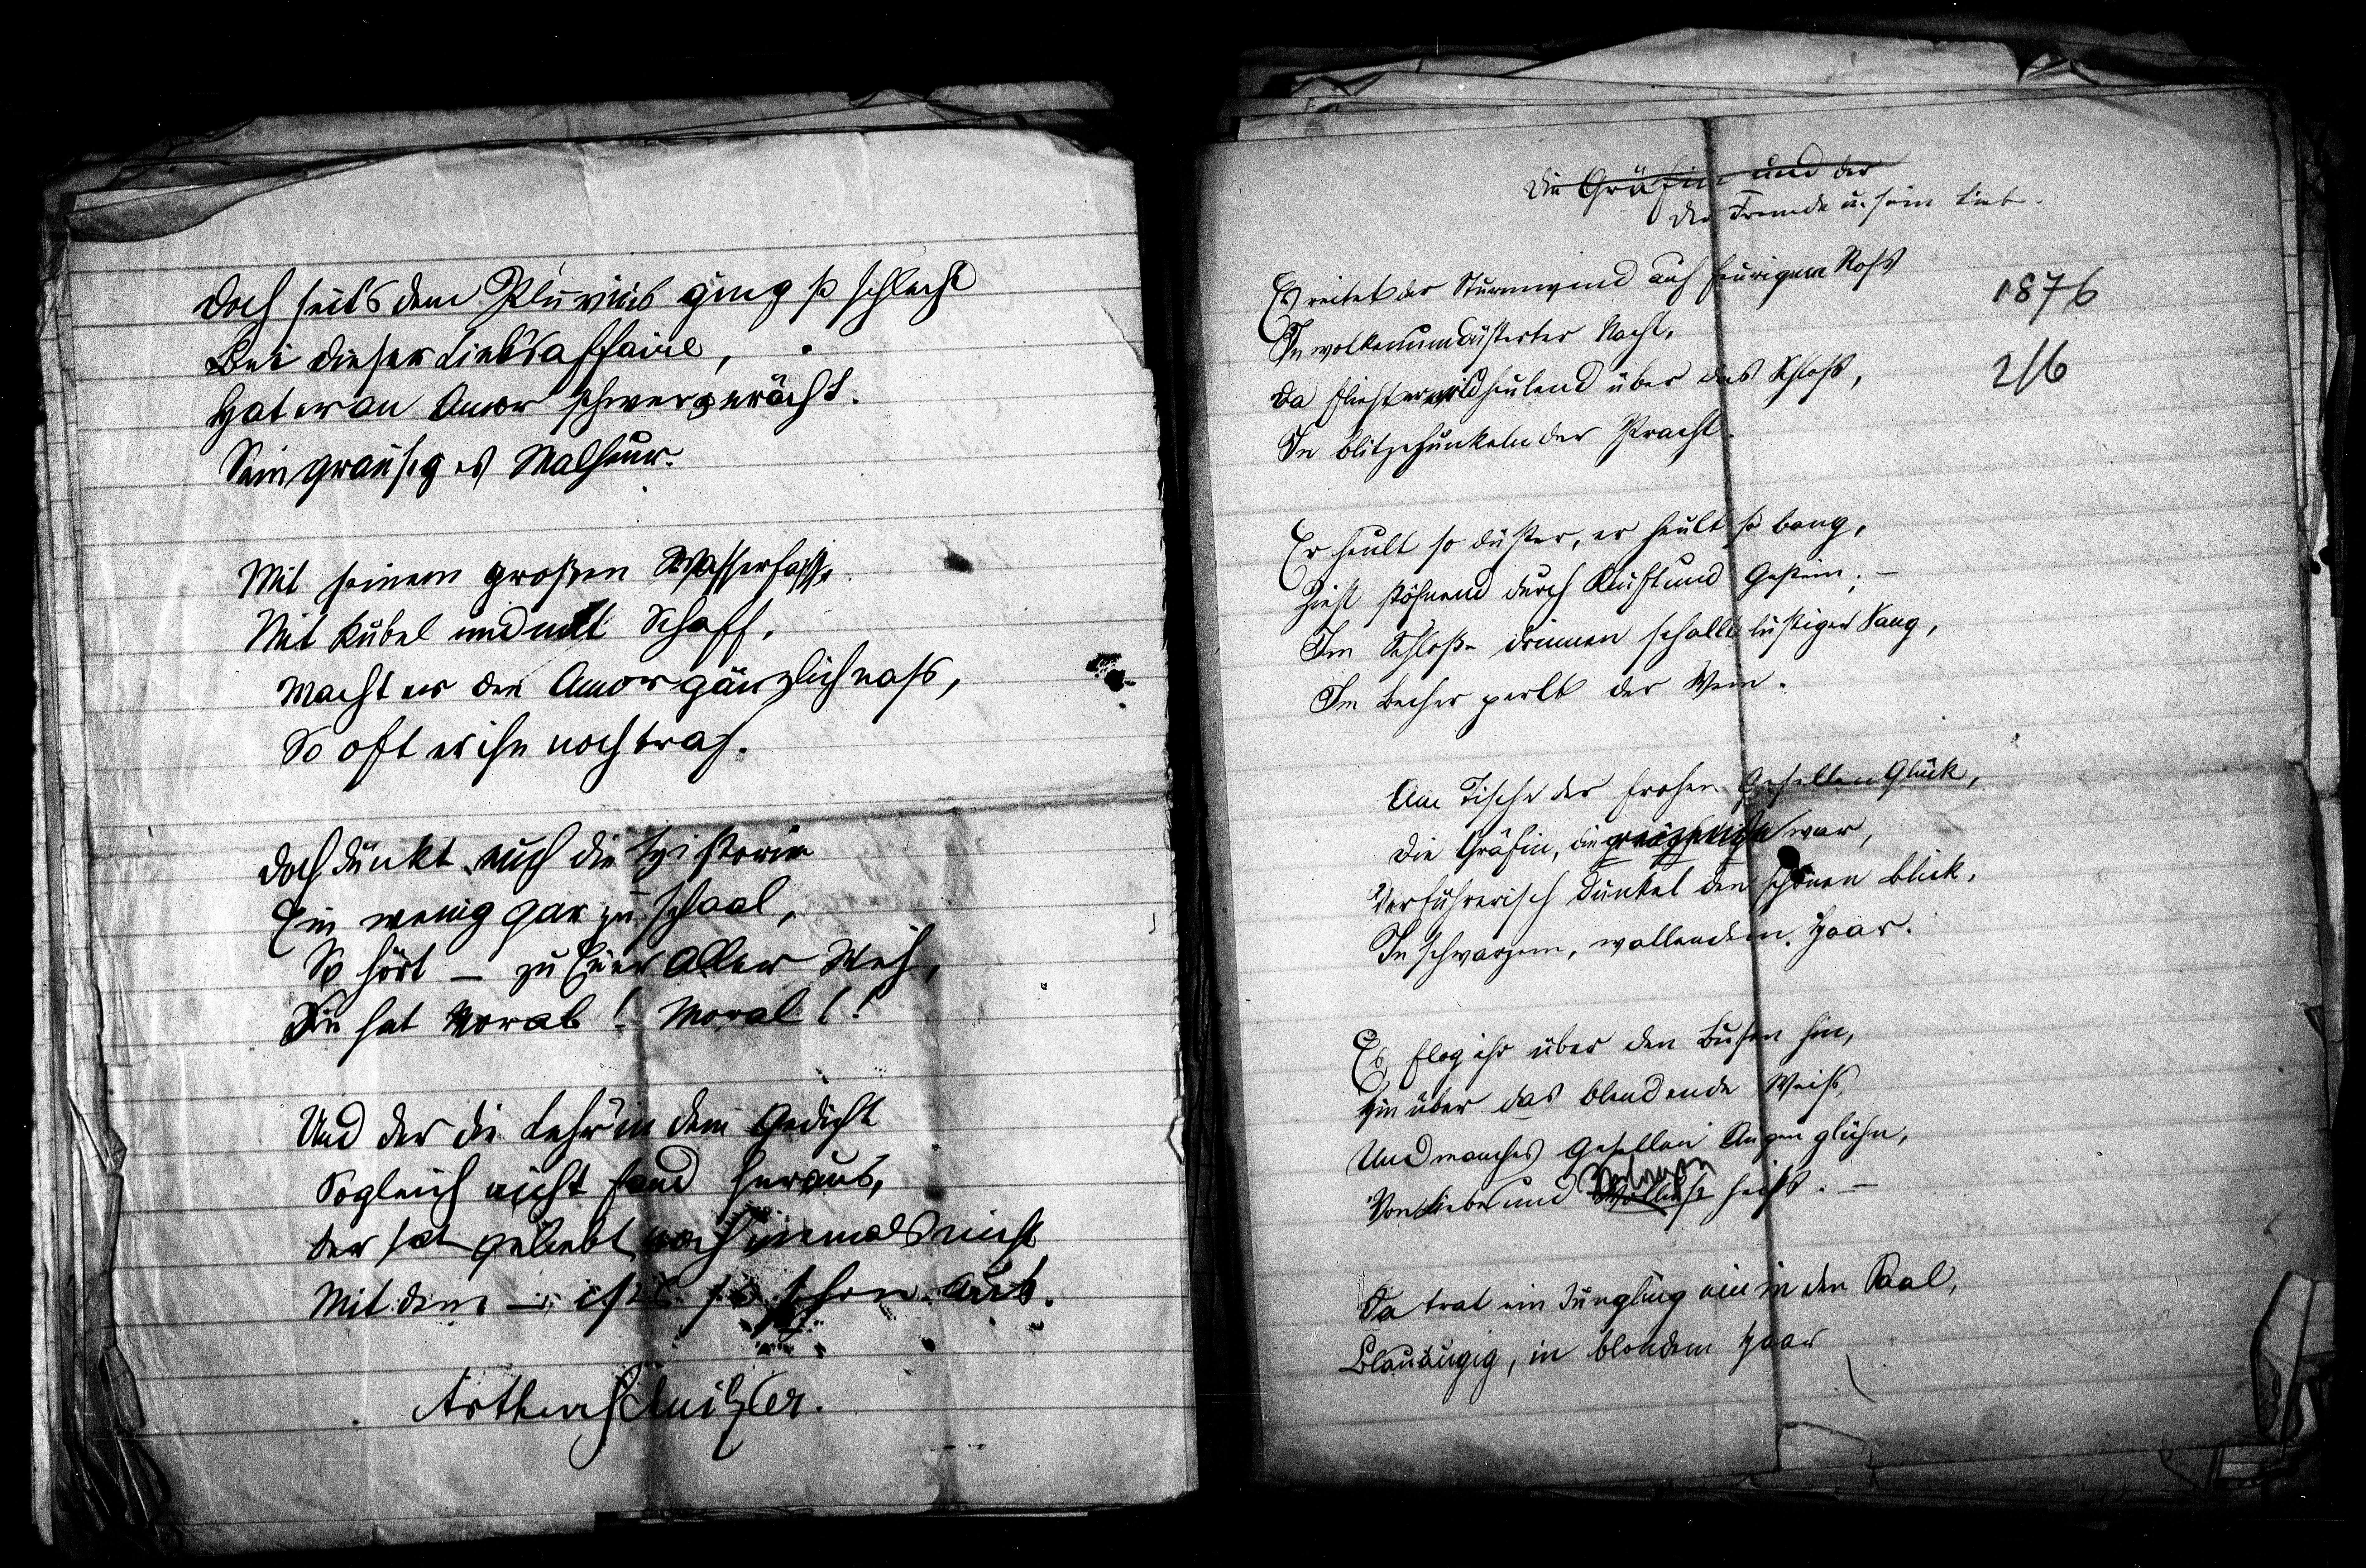 Doch seit's dem Pluvius ging so schlecht
Bei dieser Liebsaffaire,
Hat er an Amor schwer gerächt
Sein grausiges Malheur.
Mit seinem großen Wasserfasse
Mit Kübel und mit Schaff,
Macht er den Amor gänzlich naß,
So oft er ihn noch traf.
Doch dünkt euch die Historie
Ein wenig gar zu schaal,
So hört — zu Euer Aller Weh,
Sie hat Moral! Moral!!
Und der die Lehr' in dem Gedicht
Sogleich nicht fand heraus,
Der hat geliebt noch niemals nicht
Mit dem — ist's so schon aus.
Arthur Schnitzler.
Die Gräfin und der
Der Fremde u. sein Lieb.
Es reitet der Sturmwind auf feurigem Roß
1876
In wolkenumdüsterter Nacht,
2/6
Da flieht er wildheulend über das Schloß,
In blitzefunkelnder Pracht.
Er heult so düster, er heult so bang,
Zieht stöhnend durch Kluft und Gestein; —
Im Schloße drinnen schallt lustiger Sang,
Im Becher perlt der Wein.
Am Tische der frohen Gesellen Glück,
Die Gräfin, die war,
Verführerisch dunkel den schönen Blick,
In schwarzem, wallendem Haar.
Es flog ihr über den Busen hin,
Hin über das blendende Weiß,
Und manches Gesellen Augen glühn,
Von Liebe und Wollust heiß. —
Da trat ein Jüngling ein in den Saal,
Blauäugig, in blondem Haar